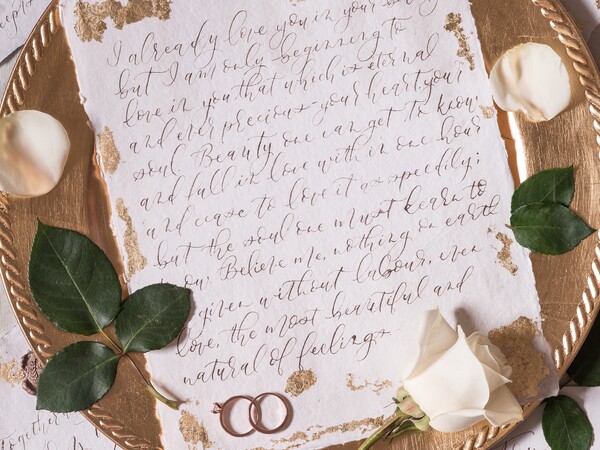 I already love you in your
but I am only beginning to
love in you that which is eternal
and ever precious - your heart, your
soul. Beauty one can get to know
and fall in love with in one hour
and cease to love it as speedily;
but the soul one must learn to
Believe me, nothing on earth
given without labour, even
love, the most beautiful and
natural of feelings